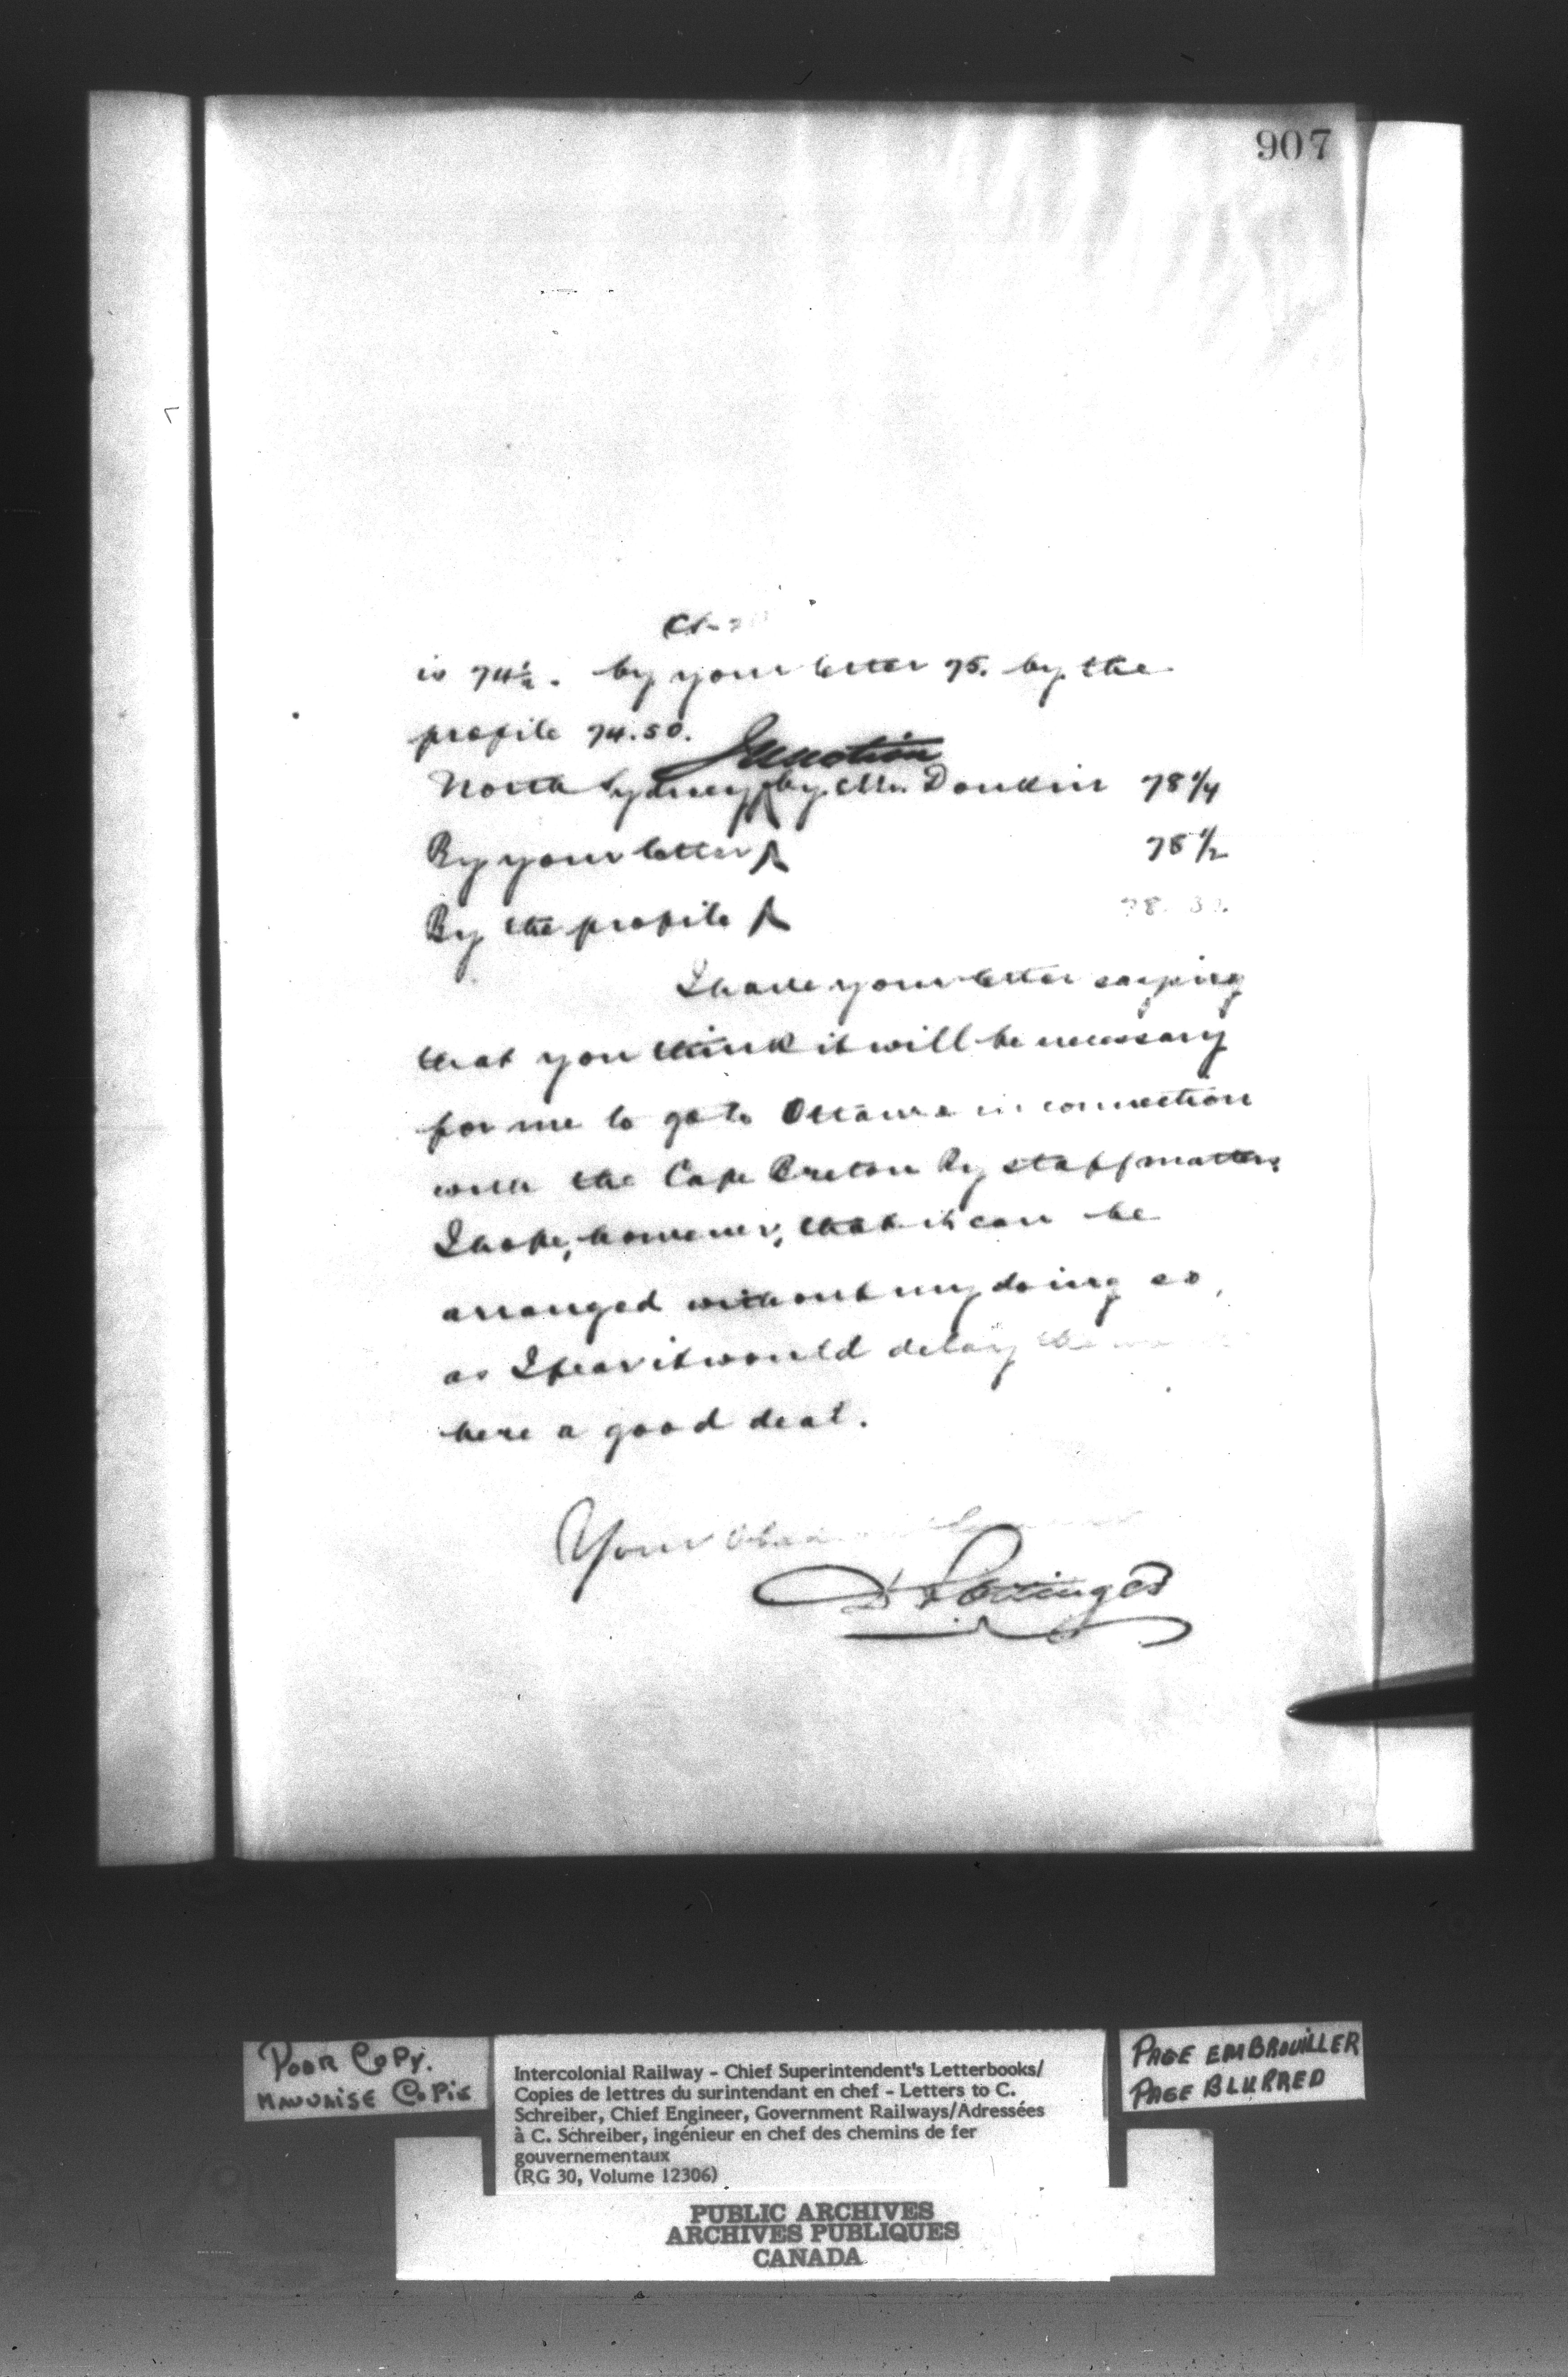 907
is 74½. by your letter 75. by the
profile 74.50.
Junction
North Sydney by Mr. Donkin 78 1/4
By your letter 78 1/2
By the profile 78.
I have your letter saying
that you think it will be necessary
for me to go to Ottawa in connection
with the Cape Breton Ry staff matters
I hope, however, that it can be
arranged without my doing so,
as I fear it would delay the
here a good deal.
Your
D Pottinger
POOR COPY.
MAUVAISE COPIE
Intercolonial Railway - Chief Superintendent's Letterbooks/
Copies de lettres du surintendant en chef - Letters to C.
Schreiber, Chief Engineer, Government Railways/Adressées
à C. Schreiber, ingénieur en chef des chemins de fer
gouvernementaux
(RG 30, Volume 12306)
PAGE EMBROUILLER
PAGE BLURRED
PUBLIC ARCHIVES
ARCHIVES PUBLIQUES
CANADA